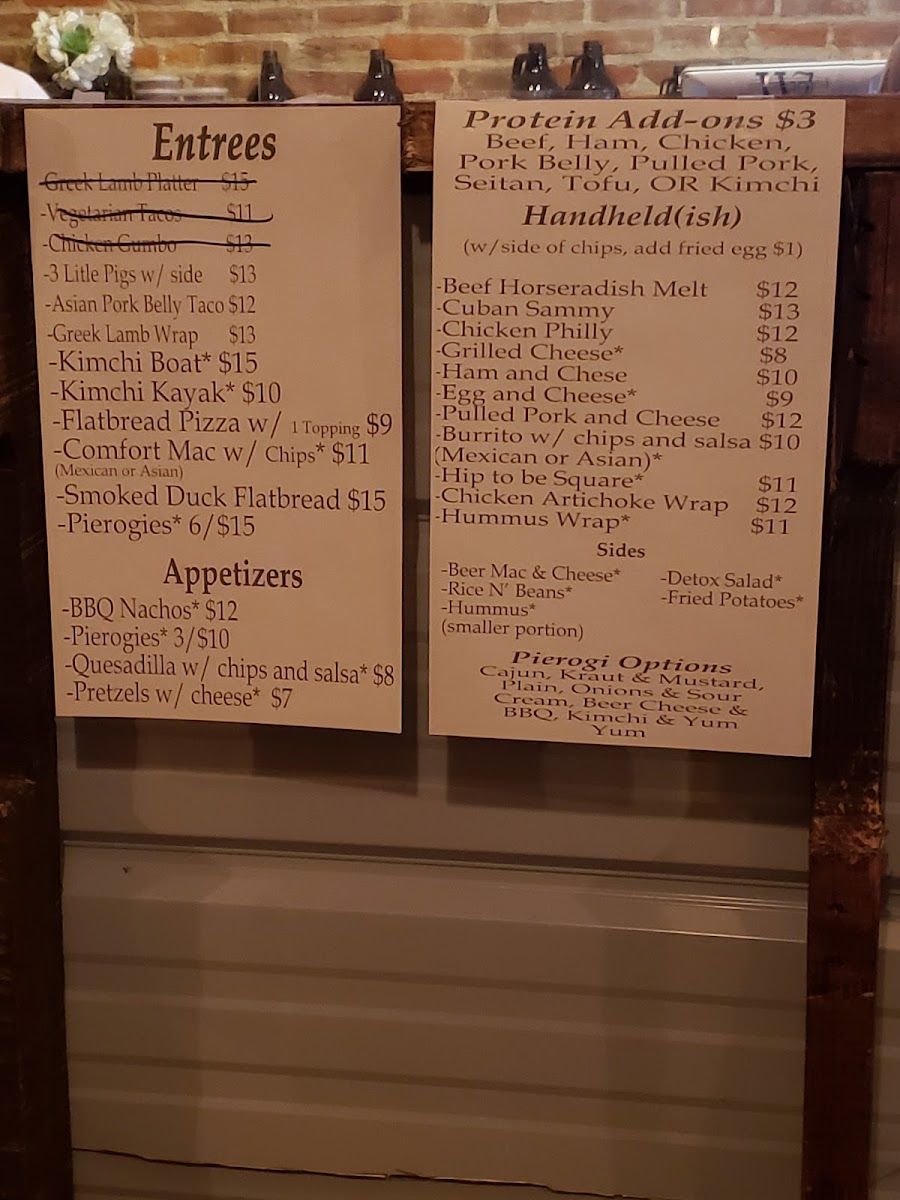 Entrees
Greek Lamb Platter $15
-Vegetarian Tacos $11
-Chicken Gumbo $13
-3 Litle Pigs w/ side $13
-Asian Pork Belly Taco $12
-Greek Lamb Wrap $13
-Kimchi Boat* $15
-Kimchi Kayak* $10
-Flatbread Pizza w/ 1 Topping $9
-Comfort Mac w/ Chips* $11
(Mexican or Asian)
-Smoked Duck Flatbread $15
-Pierogies* 6/$15
Appetizers
-BBQ Nachos* $12
-Pierogies* 3/$10
-Quesadilla w/ chips and salsa* $8
-Pretzels w/ cheese* $7
Protein Add-ons $3
Beef, Ham, Chicken,
Pork Belly, Pulled Pork,
Seitan, Tofu, OR Kimchi
Handheld(ish)
(w/side of chips, add fried egg $1)
-Beef Horseradish Melt $12
-Cuban Sammy $13
-Chicken Philly $12
-Grilled Cheese* $8
-Ham and Chese $10
-Egg and Cheese* $9
-Pulled Pork and Cheese $12
-Burrito w/ chips and salsa $10
(Mexican or Asian)*
-Hip to be Square* $11
-Chicken Artichoke Wrap $12
-Hummus Wrap* $11
Sides
-Beer Mac & Cheese* -Detox Salad*
-Rice N' Beans* -Fried Potatoes*
-Hummus*
(smaller portion)
Pierogi Options
Cajun, Kraut & Mustard,
Plain, Onions & Sour
Cream, Beer Cheese &
BBQ, Kimchi & Yum
Yum